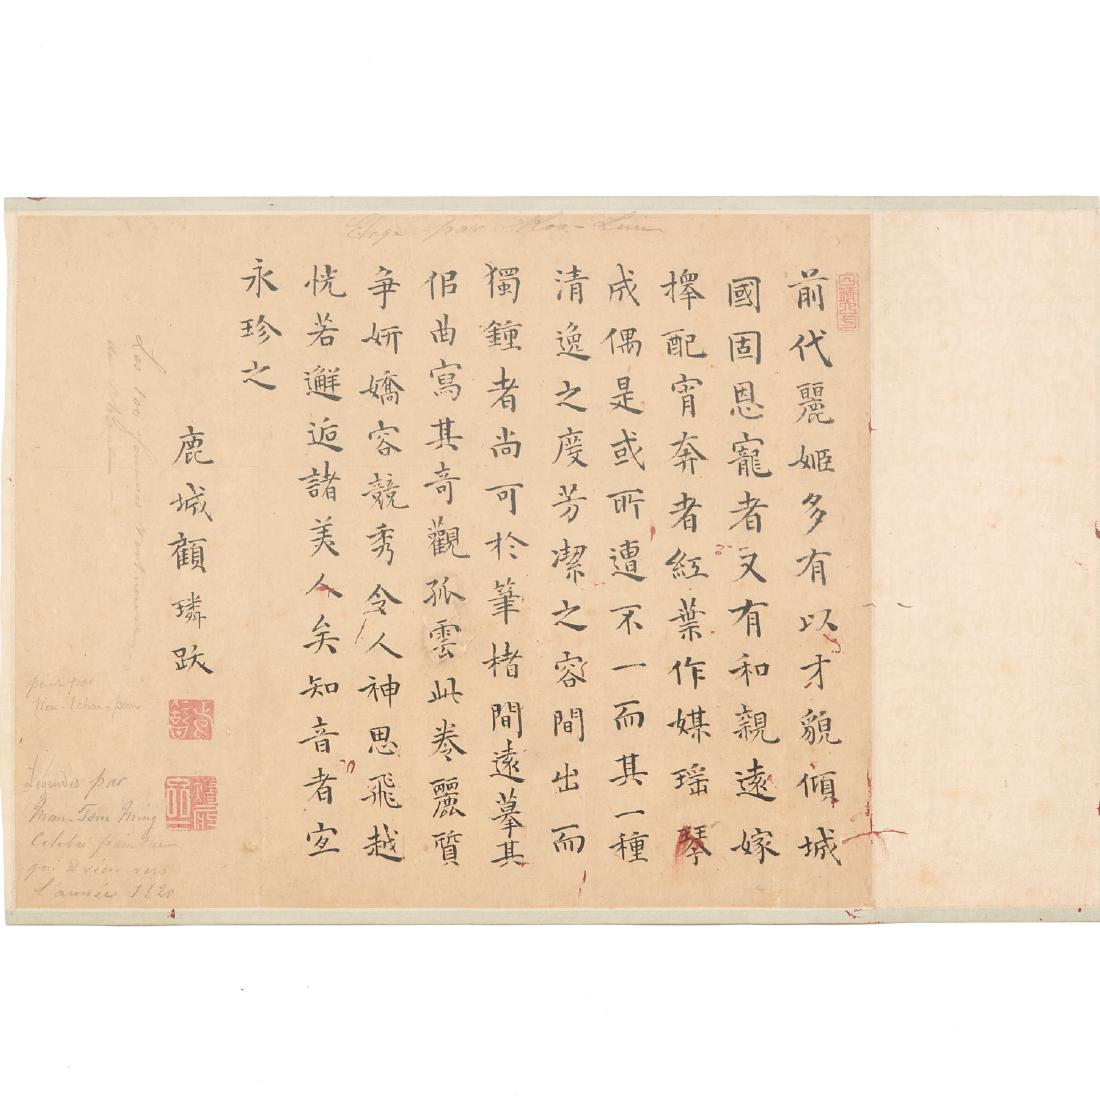 前代麗姬多有以才貌傾城
國固恩寵者又有和親遠嫁
擇配宵奔者紅葉作媒瑶琴
成偶是或所遭不一而其一種
清逸之度芳潔之容間出而
獨鐘者尚可於筆楮間遠摹其
侣曲寫其奇觀孤雲此卷麗質
争妍嬌容競秀令人神思飛越
恍若邂逅諸美人矣知音者宜
永珍之
鹿城顧璘跋
Eloge par Koo-Lin
Les 100 femmes
peint par
Légendes par
Ming
Celèbre peintre
qui vécu vers
l'année 1620